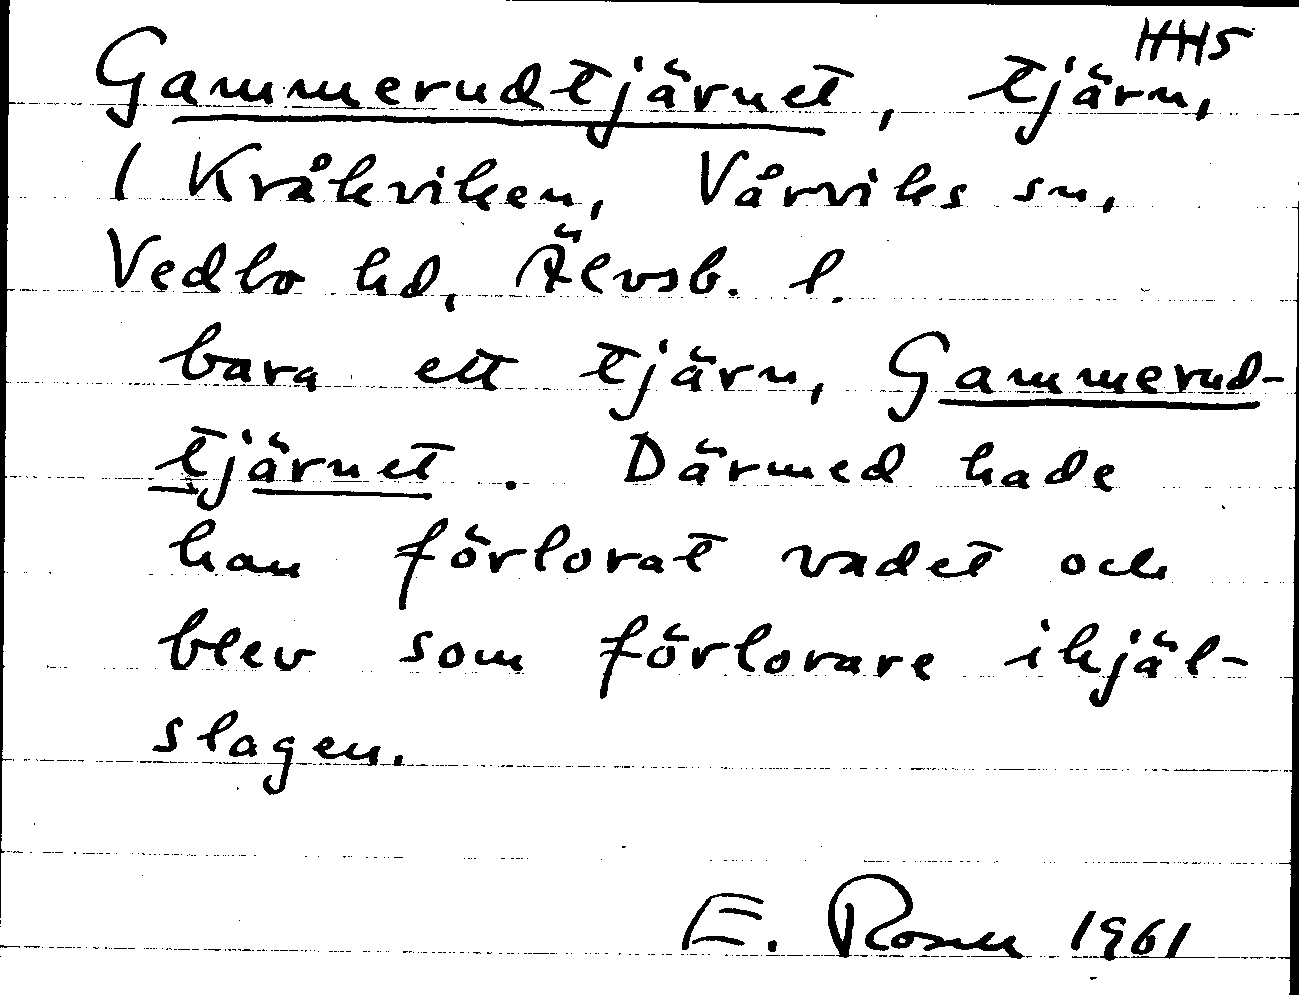 HHS
Gammerudtjärnet, tjärn,
i Kråkviken, Vårviks sn,
Vedbo hd, Älvsb. l.
bara ett tjärn, Gammerud-
tjärnet. Därmed hade
han förlorat vadet och
blev som förlorare ihjäl-
slagen.
E. Rosen 1961